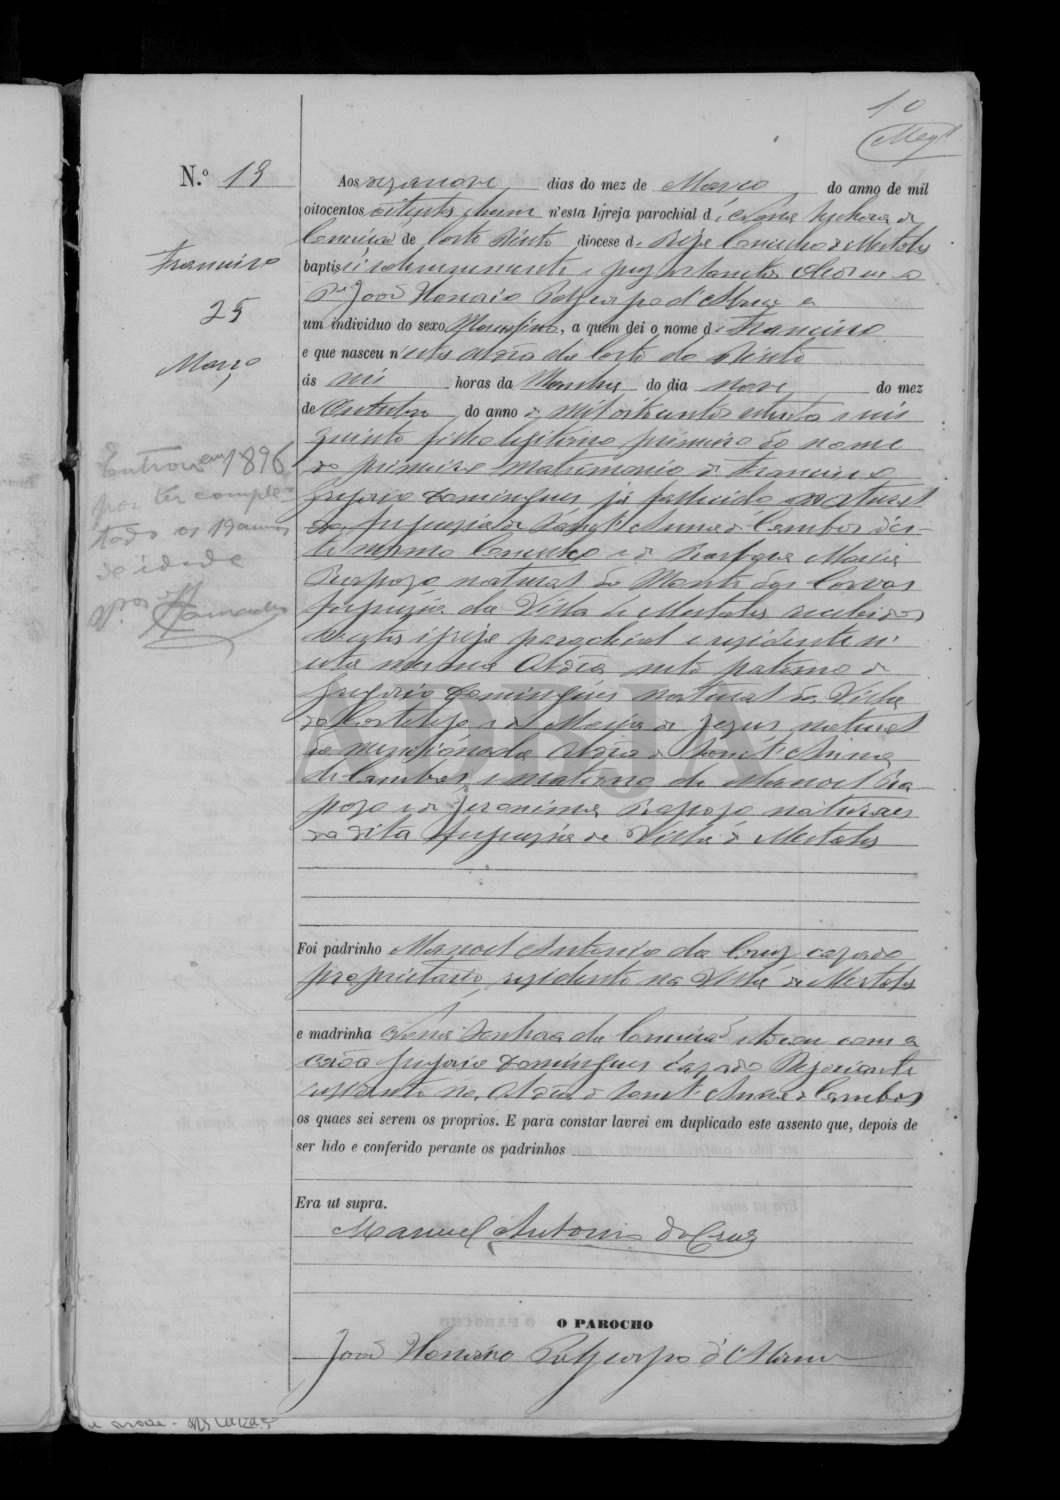 10
N.º 13
Aos dezanove dias do mez de Março do anno de mil
oitocentos oitenta n'esta Igreja parochial d Nossa Senhora da
Conceição de Corte Pinto diocese de Beja Concelho de Mertola
baptisei solemnemente e puz os Santos Oleos
Francisco
25
Março
Pe João Honorio Polycarpo d'
um individuo do sexo Masculino, a quem dei o nome de Francisco
e que nasceu n'esta Aldêa da Corte do Pinto
ás seis horas da Manhã do dia nove do mez
de Outubro do anno de mil oitocentos e
quinto filho legitimo primeiro do nome
do primeiro matrimonio de Francisco
Gregorio Domingues já fallecido natural
da freguezia de Sant'Anna de Cambas d'es-
te mesmo Concelho e de Maria
Raposo natural do Monte dos Corvos
freguezia da Villa de Mertola recebidos
n'esta igreja parochial e residente n'
esta mesma Aldêa neto paterno de
Gregorio Domingues natural da Villa
de e de Maria de Jezus natural
da mencionada Aldêa de Sant'Anna
de Cambas, e materno de Manoel Ra-
pozo e de Jeronima Rapozo naturaes
da dita freguezia da Villa de Mertola
Entrou em 1896
por ter comple-
tado os 19 annos
de idade
Foi padrinho Manoel Antonio da Cruz cazado
proprietario, residente na Villa de Mertola
e madrinha Nossa Senhora da Conceição e tocou com a
corôa Gregorio Domingues cazado Negociante
residente na Aldêa de Sant'Anna de Cambas
os quaes sei serem os proprios. E para constar lavrei em duplicado este assento que, depois de
ser lido e conferido perante os padrinhos
Era ut supra.
Manuel Antonio da Cruz
O PAROCHO
João Honorio Polycarpo d'